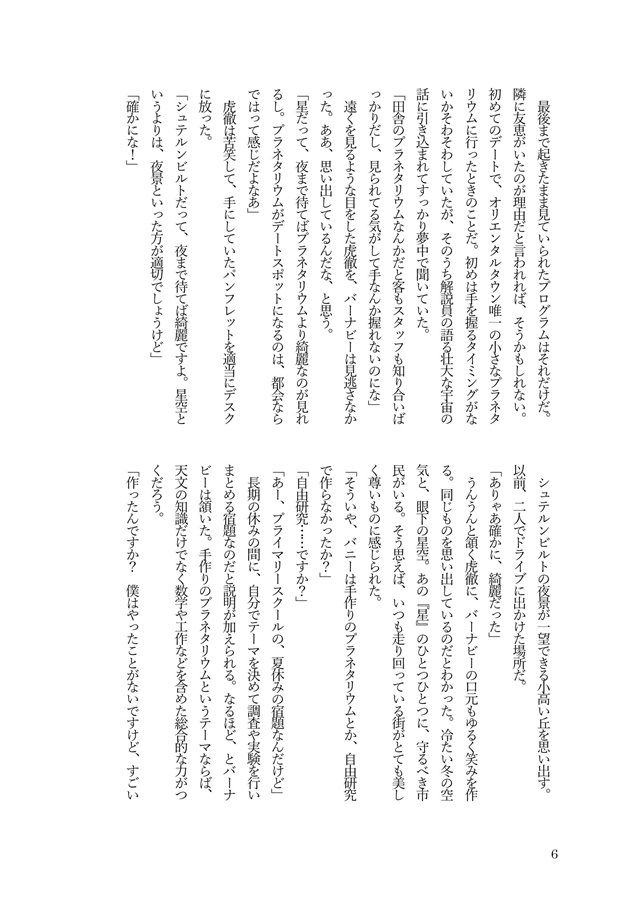 最後まで起きたまま見ていられたプログラムはそれだけだ。
隣に友恵がいたのが理由だと言われれば、そうかもしれない。
初めてのデートで、オリエンタルタウン唯一の小さなプラネタ
リウムに行ったときのことだ。初めは手を握るタイミングがな
いかそわそわしていたが、そのうち解説員の語る壮大な宇宙の
話に引き込まれてすっかり夢中で聞いていた。
「田舎のプラネタリウムなんかだと客もスタッフも知り合いば
っかりだし、見られてる気がして手なんか握れないのにな」
　遠くを見るような目をした虎徹を、バーナビーは見逃さなか
った。ああ、思い出しているんだな、と思う。
「星だって、夜まで待てばプラネタリウムより綺麗なのが見れ
るし。プラネタリウムがデートスポットになるのは、都会なら
ではって感じだよなあ」
　虎徹は苦笑して、手にしていたパンフレットを適当にデスク
に放った。
「シュテルンビルトだって、夜まで待てば綺麗ですよ。星空と
いうよりは、夜景といった方が適切でしょうけど」
「確かにな！」
　シュテルンビルトの夜景が一望できる小高い丘を思い出す。
以前、二人でドライブに出かけた場所だ。
「ありゃあ確かに、綺麗だった」
　うんうんと頷く虎徹に、バーナビーの口元もゆるく笑みを作
る。同じものを思い出しているのだとわかった。冷たい冬の空
気と、眼下の星空。あの『星』のひとつひとつに、守るべき市
民がいる。そう思えば、いつも走り回っている街がとても美し
く尊いものに感じられた。
「そういや、バニーは手作りのプラネタリウムとか、自由研究
で作らなかったか？」
「自由研究……ですか？」
「あー、プライマリースクールの、夏休みの宿題なんだけど」
　長期の休みの間に、自分でテーマを決めて調査や実験を行い
まとめる宿題なのだと説明が加えられる。なるほど、とバーナ
ビーは頷いた。手作りのプラネタリウムというテーマならば、
天文の知識だけでなく数学や工作などを含めた総合的な力がつ
くだろう。
「作ったんですか？　僕はやったことがないですけど、すごい
6